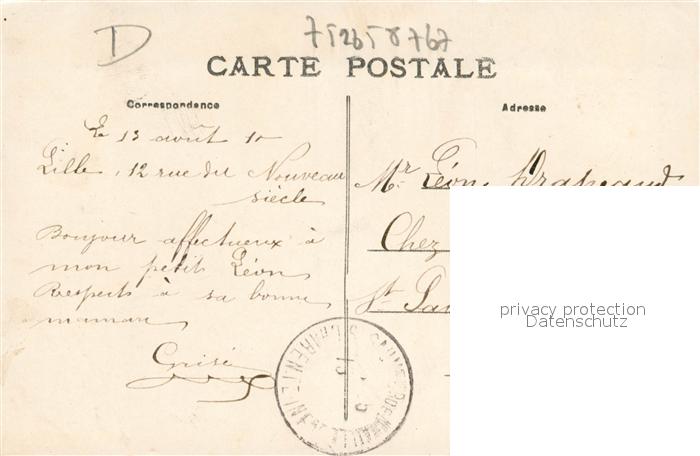 D
7526587b7
CARTE POSTALE
Correspondance
Adresse
Le 13 août 10
Lille, 12 rue du Nouveau
siècle
Bonjour affectueux à
mon petit Léon
Respects à sa bonne
maman
Mr. Léon
Chez
St
privacy protection
Datenschutz